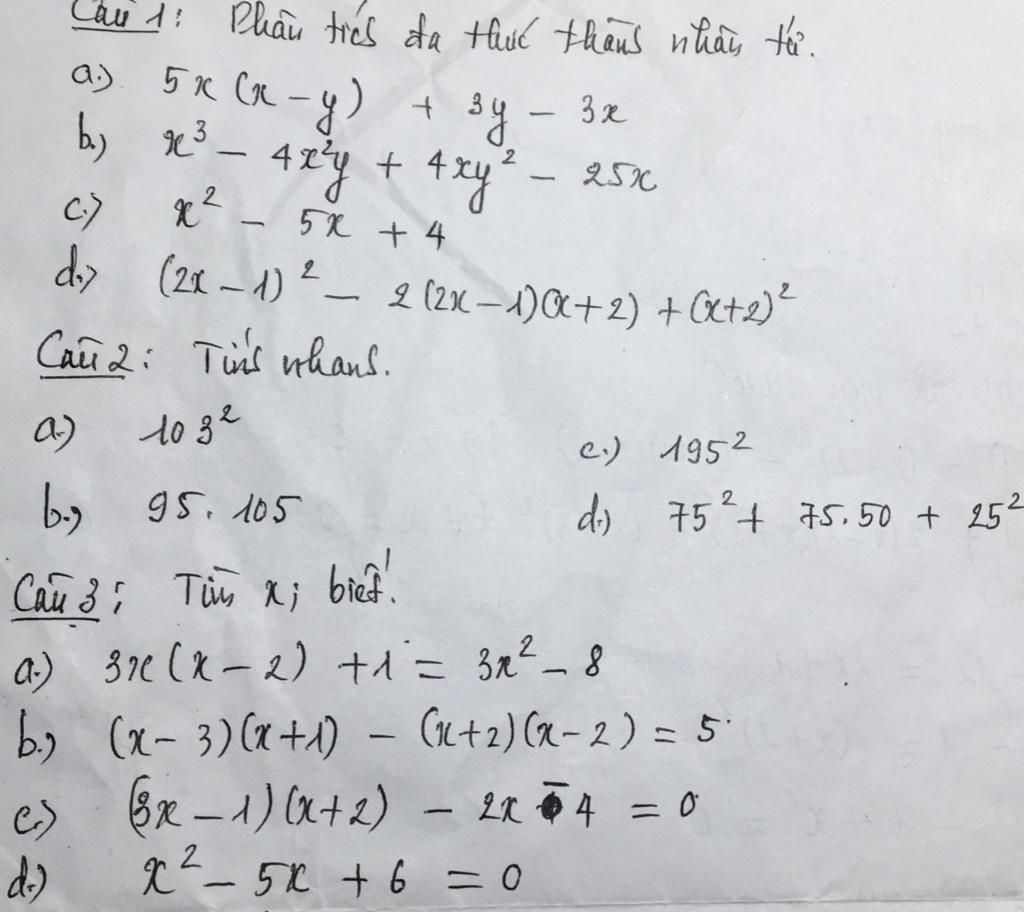 Câu 1: Phân tích đa thức thành nhân tử.
a.) 5x (x - y) + 3y - 3x
b.) x³ - 4x²y + 4xy² - 25x
c.) x² - 5x + 4
d.) (2x - 1)² - 2(2x - 1)(x + 2) + (x+2)²
Câu 2: Tính nhanh.
a.) 103²
c.) 195²
b.) 95. 105
d.) 75² + 75.50 + 25²
Câu 3: Tìm x; biết!
a.) 3x(x - 2) + 1 = 3x² - 8
b.) (x - 3)(x+1) - (x+2)(x-2) = 5
c.) (3x - 1)(x+2) - 2x - 4 = 0
d.) x² - 5x + 6 = 0